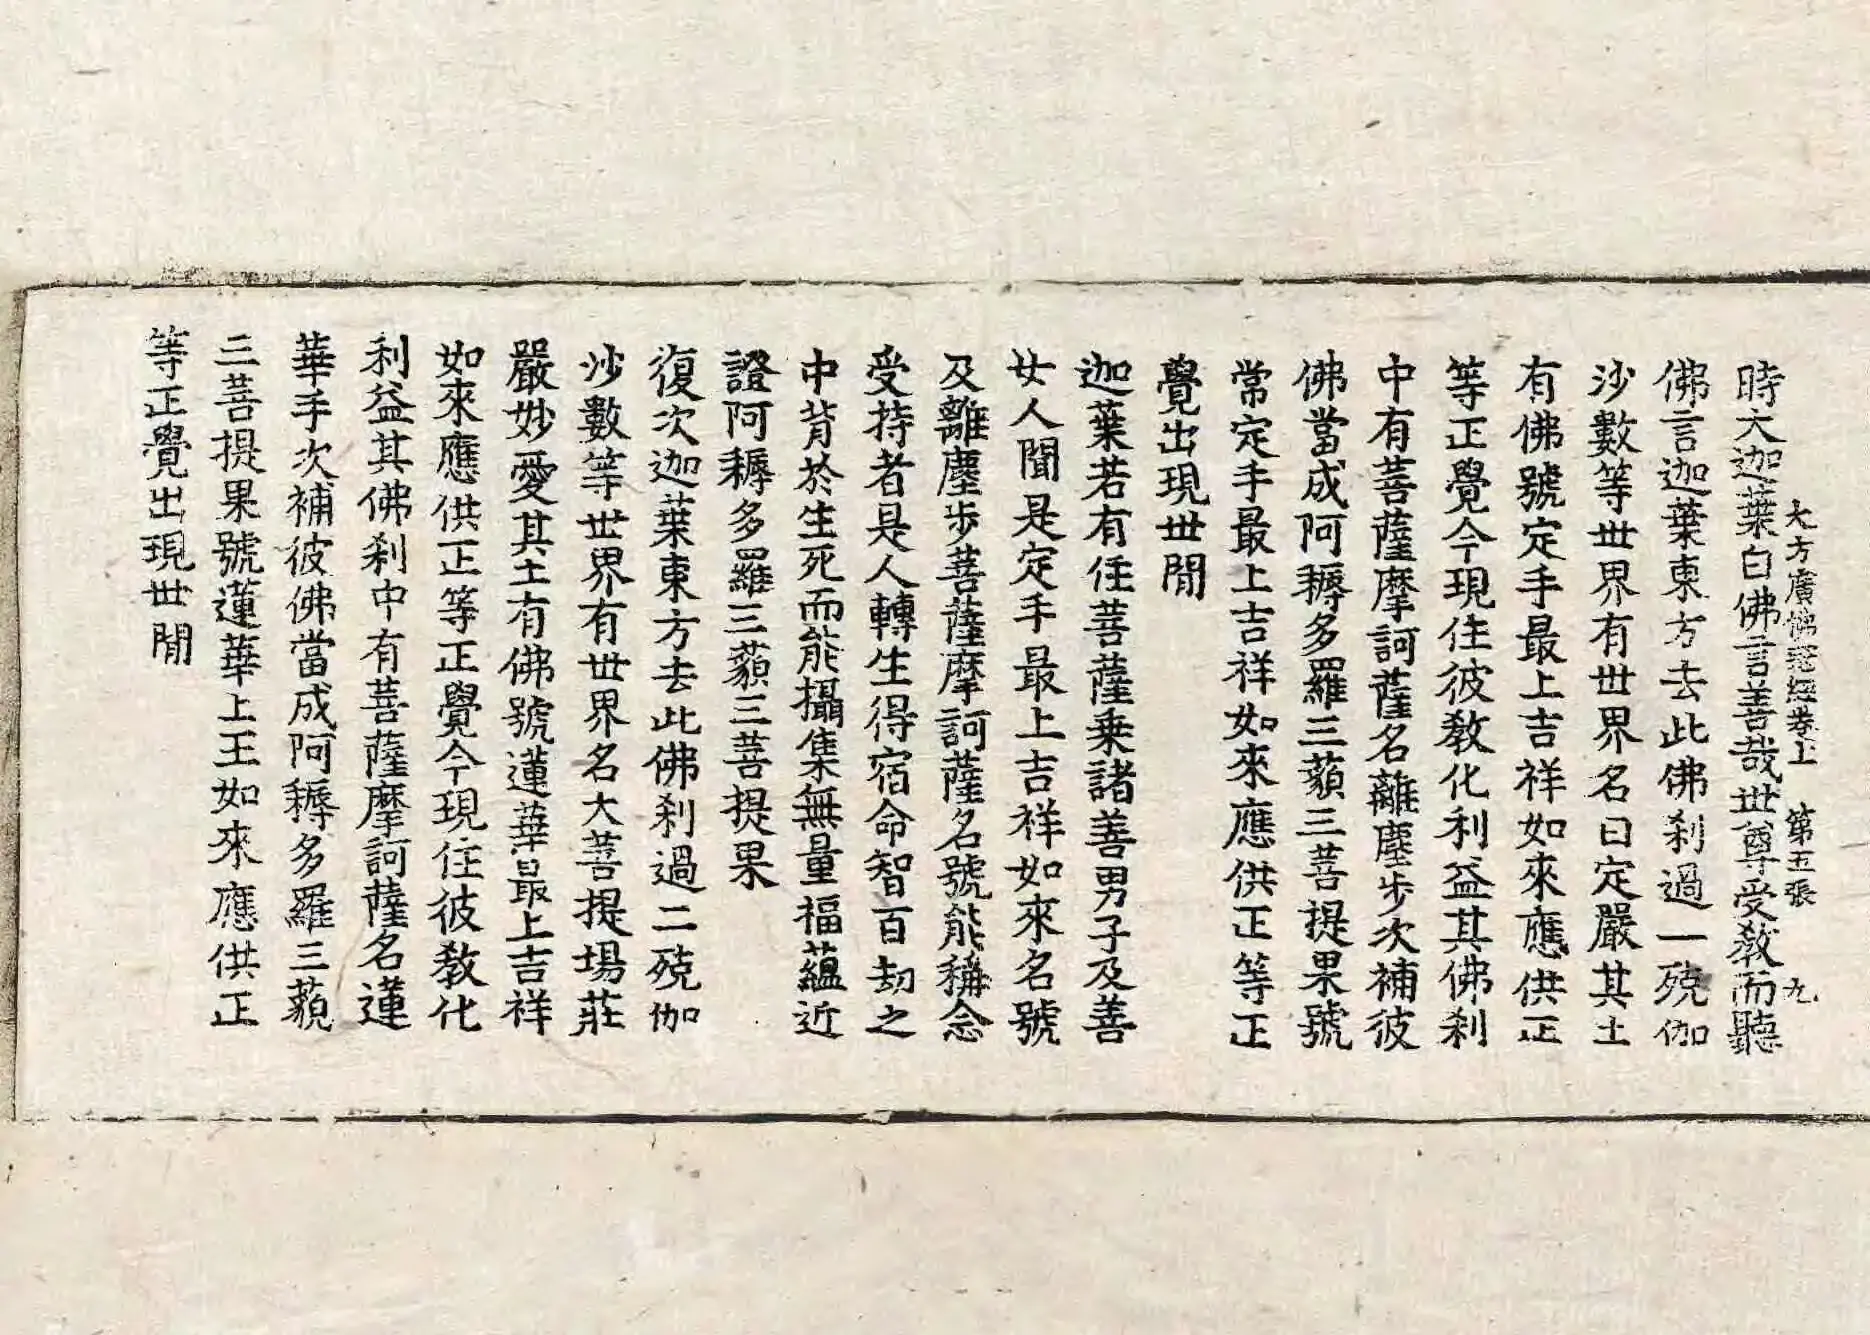 大方廣佛冠經卷上　第五張　九
時大迦葉白佛言善哉世尊受教而聽
佛言迦葉東方去此佛刹過一殑伽
沙數等世界有世界名曰定嚴其土
有佛號定手最上吉祥如來應供正
等正覺今現住彼教化利益其佛刹
中有菩薩摩訶薩名離塵步次補彼
佛當成阿耨多羅三藐三菩提果號
常定手最上吉祥如來應供正等正
覺出現世閒
迦葉若有住菩薩乘諸善男子及善
女人聞是定手最上吉祥如來名號
及離塵步菩薩摩訶薩名號能稱念
受持者是人轉生得宿命智百劫之
中背於生死而能攝集無量福蘊近
證阿耨多羅三藐三菩提果
復次迦葉東方去此佛刹過二殑伽
沙數等世界有世界名大菩提場莊
嚴妙愛其土有佛號蓮華最上吉祥
如來應供正等正覺今現住彼教化
利益其佛刹中有菩薩摩訶薩名蓮
華手次補彼佛當成阿耨多羅三藐
三菩提果號蓮華上王如來應供正
等正覺出現世閒